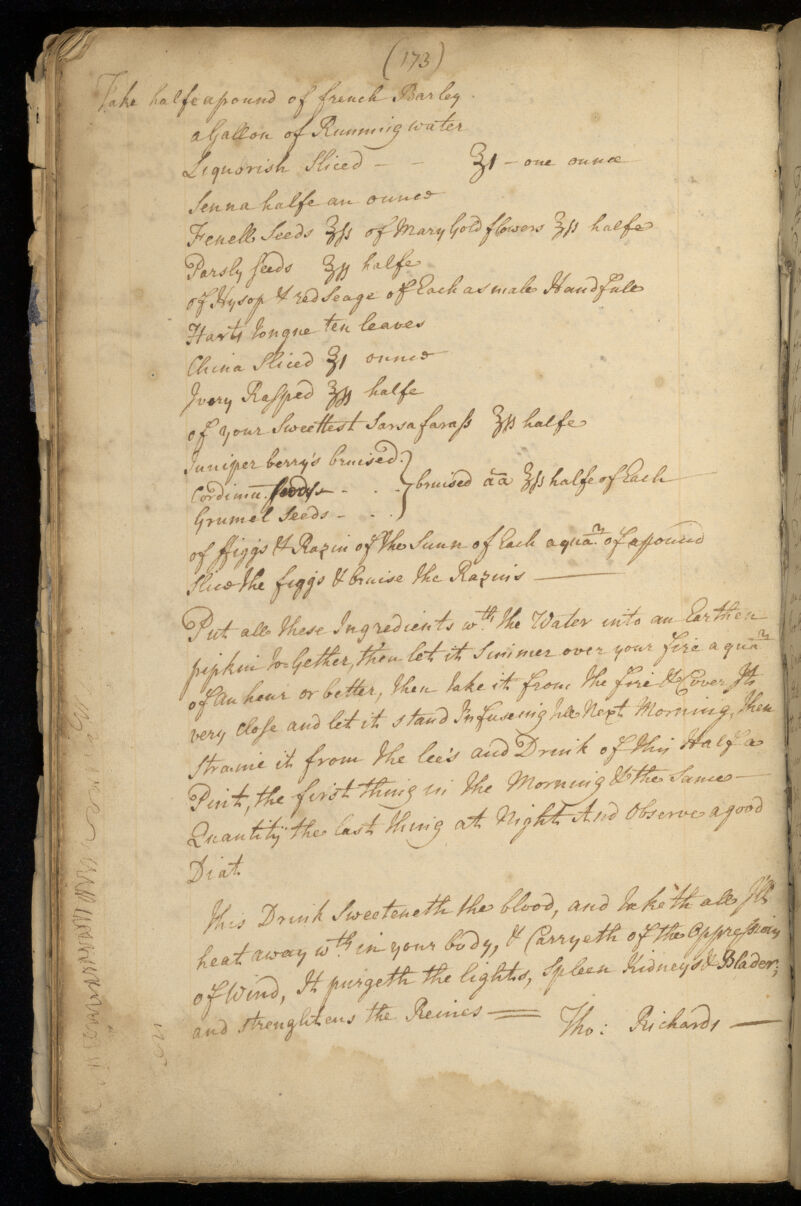 (173)
Take halfe a pound of french Barley
a Gallon of Running water
Liquorish Sliced - - ℥1 - one ounce
Senna halfe an ounce
Fenell Seeds ℥ss of MaryGold flowers ℥ss halfe
Parsly seeds ℥ss halfe
of Hysop & red Seage of Each a smale Handfule
Harts tongue ten leaves
China Sliced ℥1 ounce
Ivory Rasped ℥ss halfe
of your Sweettest Sarsafarass ℥ss halfe
Juniper berry's bruised
Cordimū seeds - - - bruised āā ℥ss halfe of Each
Grumel Seeds - - .
of ffiggs & Razin of the Sunn of Each a quar of a pound
Slice the figgs & bruise the Razins
Put all these Ingredients wth the Water into an Earthen
pipkin to Gether, then let it Simmer over your fire a quar
of an hour or better, then take it from the fire & Cover It
very close and let it stand Infuseing till Next Morning, then
straine it from the lee's and Drink of this Half a
Pint, the first thing in the Morning & the Same
Quantity the last thing at Night And Observe a good
Diat
This Drink Sweeteneth the blood, and taketh all Ill
heat away wth in your body, & Carryeth of the Oppression
of Wind, It purgeth the lights, Spleen Kidneys & Blader;
and strenghtens the Reines == Tho: Richards —